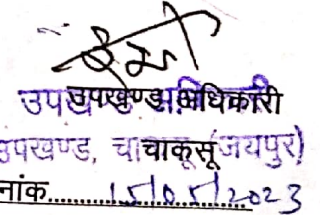 उपखण्ड अधिकारी
उपखण्ड, चाकसू (जयपुर)
नांक.................... 15/05/2023